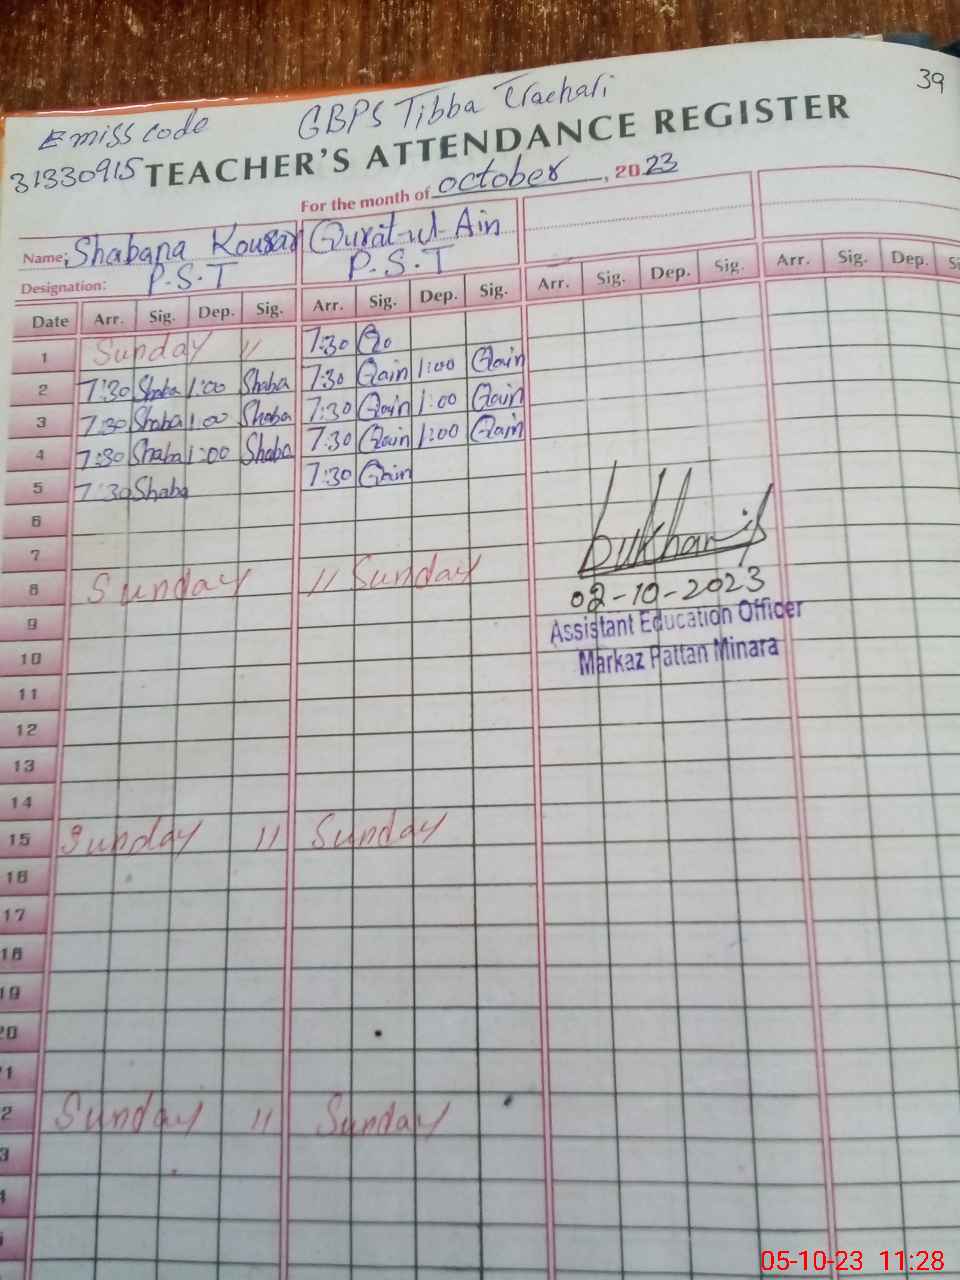 39
Emiss code GBPS Tibba Trachari
31330915 TEACHER'S ATTENDANCE REGISTER
For the month of October, 2023
Name; Shabana Kousar Qurat-ul-Ain
Designation: P.S.T P.S.T
Date Arr. Sig. Dep. Sig. Arr. Sig. Dep. Sig. Arr. Sig. Dep. Sig. Arr. Sig. Dep. Si
1 Sunday 〃 7:30 Qo
2 7:30 Shaba 1:00 Shaba 7:30 Qain 1:00 Qain
3 7:30 Shaba 1:00 Shaba 7:30 Qain 1:00 Qain
4 7:30 Shaba 1:00 Shaba 7:30 Qain 1:00 Qain
5 7:30 Shaba 7:30 Qain
6
7
8 Sunday 〃 Sunday
bukhari
02-10-2023
Assistant Education Officer
Markaz Pattan Minara
9
10
11
12
13
14
15 Sunday 〃 Sunday
16
17
18
19
20
1
2 Sunday 〃 Sunday
3
4
05-10-23 11:28